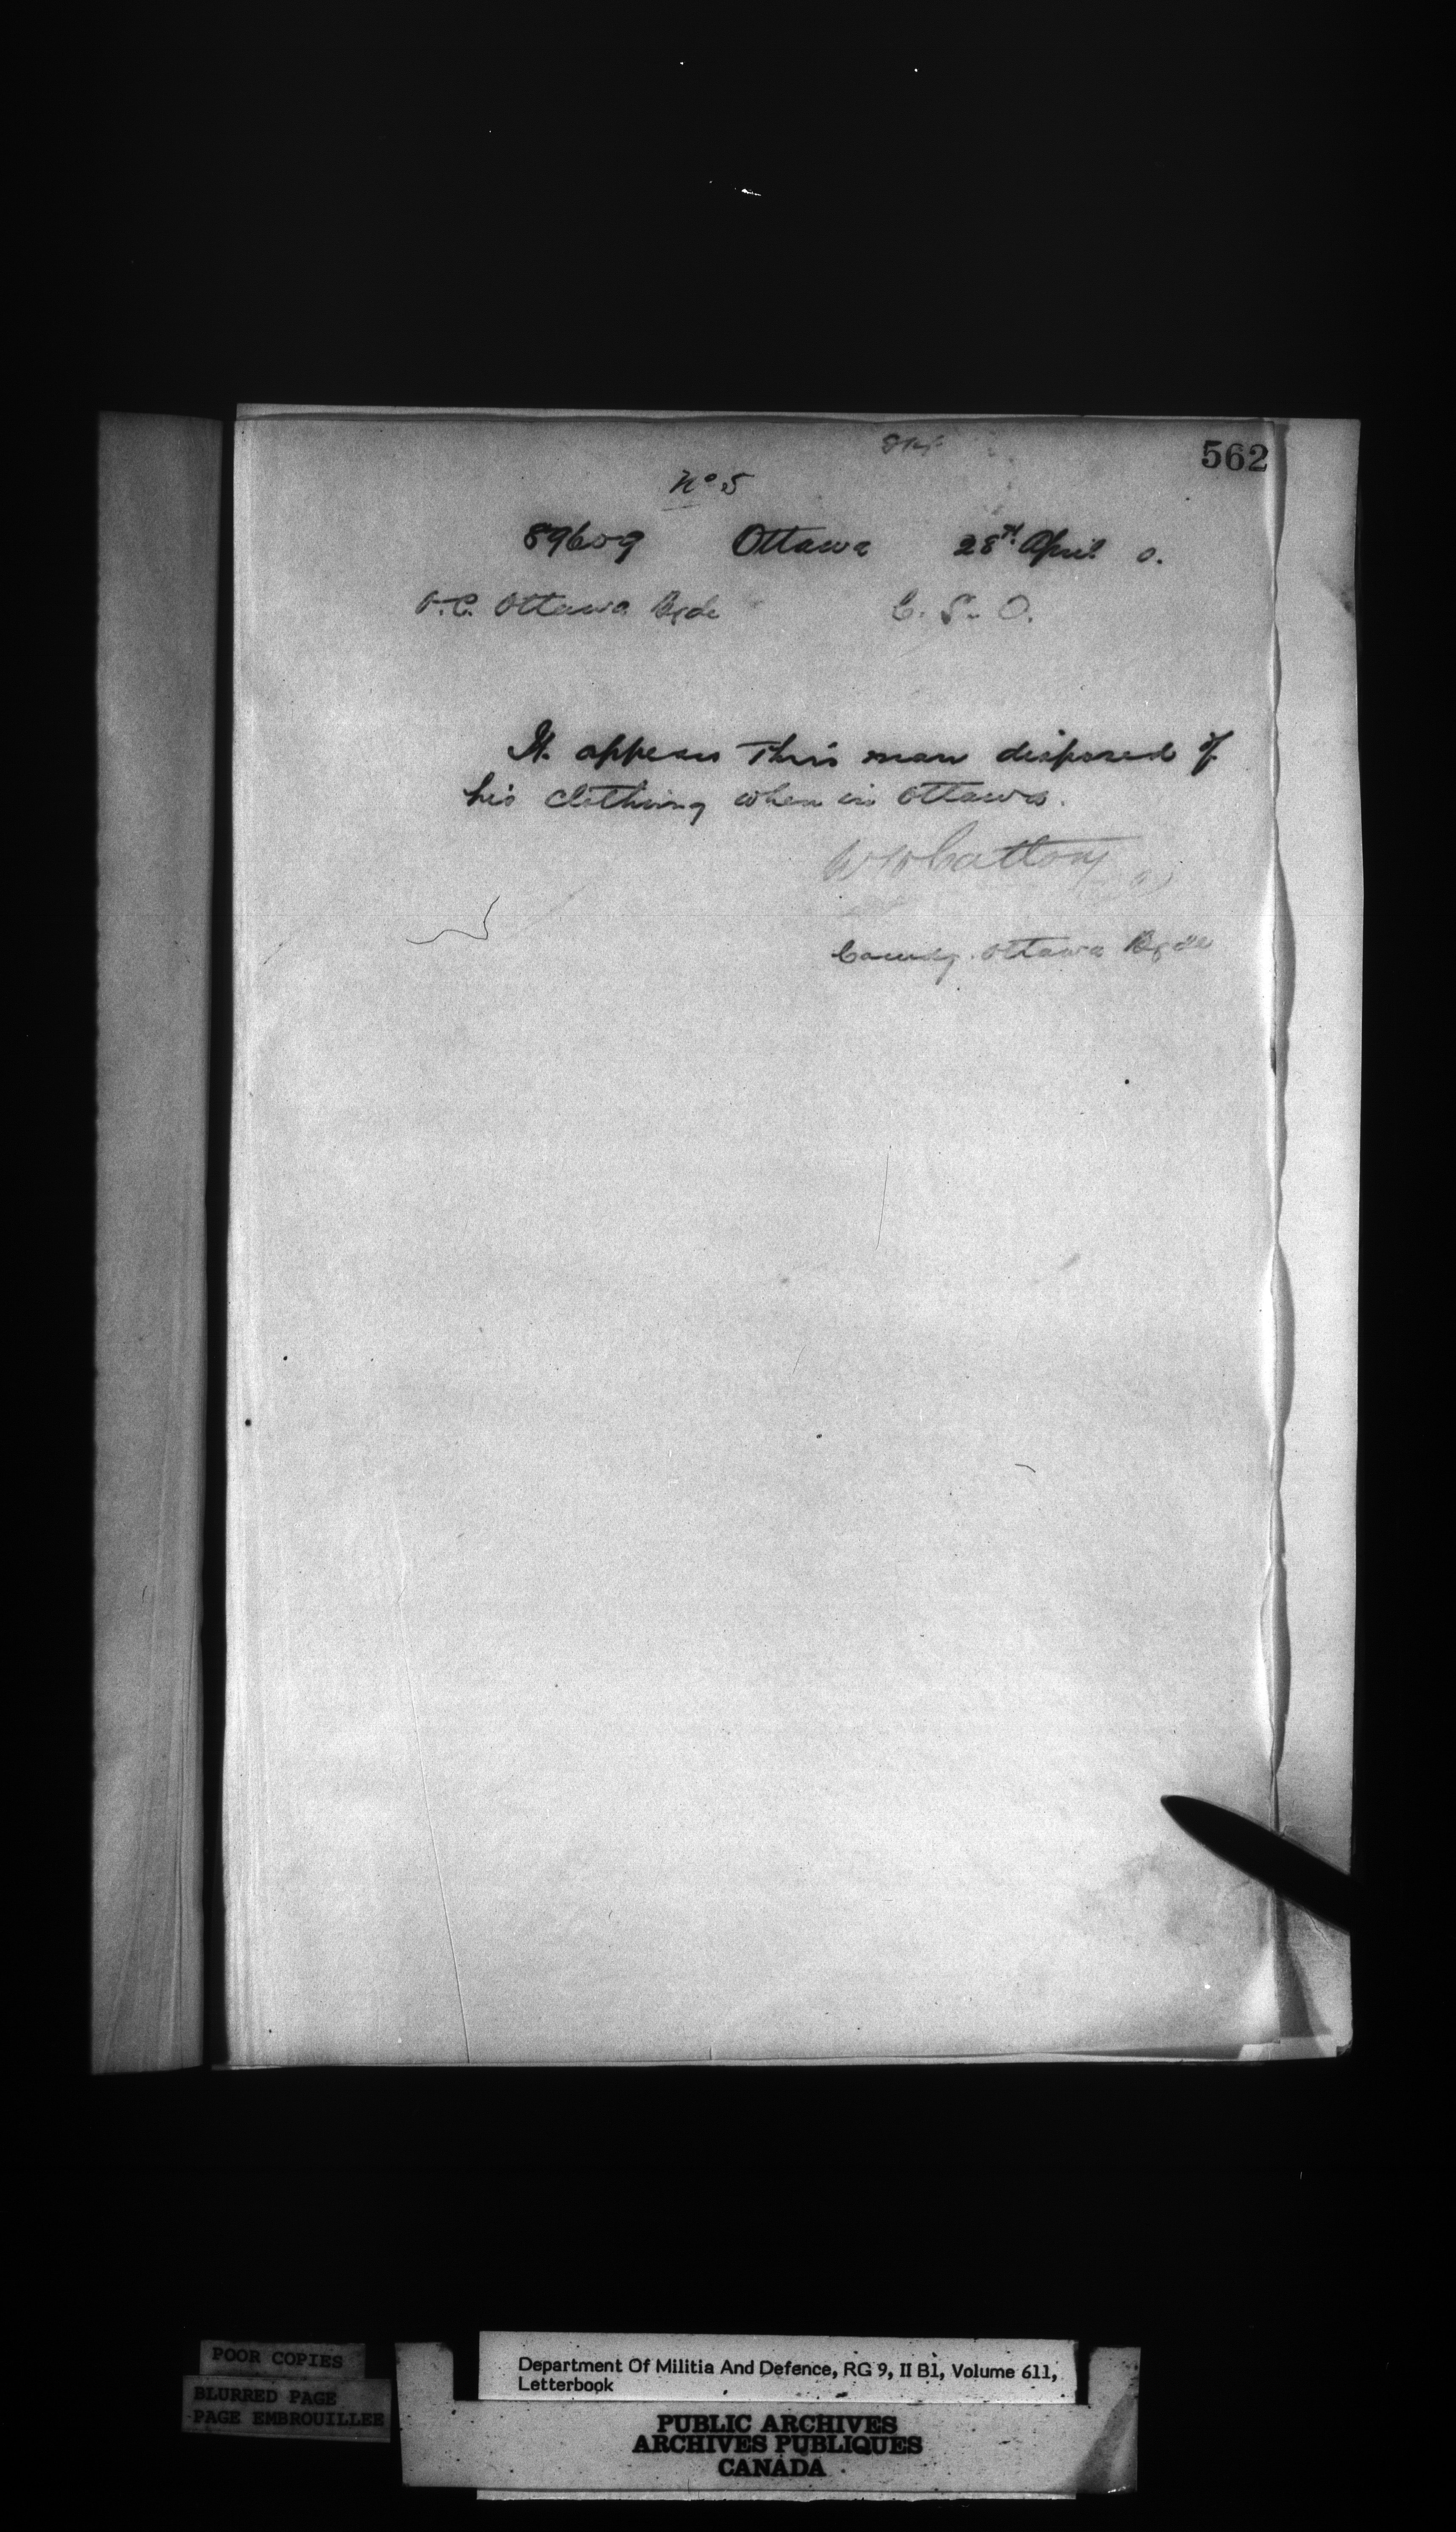 562
No 5
89609 Ottawa 28th April 0.
O.C. Ottawa Bgde C. S. O.
It appears this man disposed of
his clothing when in Ottawa.
Comdg. Ottawa Bgde
POOR COPIES
BLURRED PAGE
PAGE EMBROUILLEE
Department Of Militia And Defence, RG 9, II B1, Volume 611,
Letterbook
PUBLIC ARCHIVES
ARCHIVES PUBLIQUES
CANADA